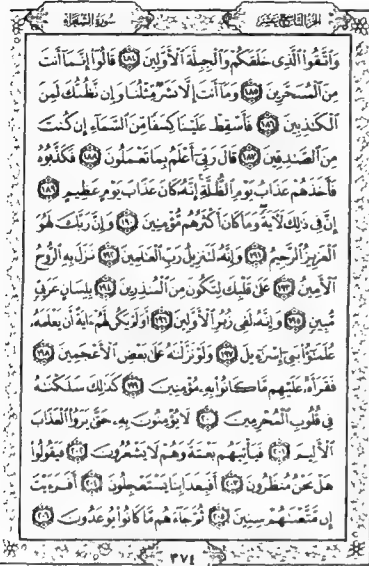 الجزء التاسع عشر سورة الشعراء
وَاتَّقُوا الَّذِي خَلَقَكُمْ وَالْجِبِلَّةَ الْأَوَّلِينَ ١٨٤ قَالُوا إِنَّمَا أَنتَ
مِنَ الْمُسَحَّرِينَ ١٨٥ وَمَا أَنتَ إِلَّا بَشَرٌ مِّثْلُنَا وَإِن نَّظُنُّكَ لَمِنَ
الْكَاذِبِينَ ١٨٦ فَأَسْقِطْ عَلَيْنَا كِسَفًا مِّنَ السَّمَاءِ إِن كُنتَ
مِنَ الصَّادِقِينَ ١٨٧ قَالَ رَبِّي أَعْلَمُ بِمَا تَعْمَلُونَ ١٨٨ فَكَذَّبُوهُ
فَأَخَذَهُمْ عَذَابُ يَوْمِ الظُّلَّةِ إِنَّهُ كَانَ عَذَابَ يَوْمٍ عَظِيمٍ ١٨٩
إِنَّ فِي ذَٰلِكَ لَآيَةً وَمَا كَانَ أَكْثَرُهُم مُّؤْمِنِينَ ١٩٠ وَإِنَّ رَبَّكَ لَهُوَ
الْعَزِيزُ الرَّحِيمُ ١٩١ وَإِنَّهُ لَتَنزِيلُ رَبِّ الْعَالَمِينَ ١٩٢ نَزَلَ بِهِ الرُّوحُ
الْأَمِينُ ١٩٣ عَلَىٰ قَلْبِكَ لِتَكُونَ مِنَ الْمُنذِرِينَ ١٩٤ بِلِسَانٍ عَرَبِيٍّ
مُّبِينٍ ١٩٥ وَإِنَّهُ لَفِي زُبُرِ الْأَوَّلِينَ ١٩٦ أَوَلَمْ يَكُن لَّهُمْ آيَةً أَن يَعْلَمَهُ
عُلَمَٰٓؤُا بَنِي إِسْرَائِيلَ ١٩٧ وَلَوْ نَزَّلْنَاهُ عَلَىٰ بَعْضِ الْأَعْجَمِينَ ١٩٨
فَقَرَأَهُ عَلَيْهِم مَّا كَانُوا بِهِ مُؤْمِنِينَ ١٩٩ كَذَٰلِكَ سَلَكْنَاهُ
فِي قُلُوبِ الْمُجْرِمِينَ ٢٠٠ لَا يُؤْمِنُونَ بِهِ حَتَّىٰ يَرَوُا الْعَذَابَ
الْأَلِيمَ ٢٠١ فَيَأْتِيَهُم بَغْتَةً وَهُمْ لَا يَشْعُرُونَ ٢٠٢ فَيَقُولُوا
هَلْ نَحْنُ مُنظَرُونَ ٢٠٣ أَفَبِعَذَابِنَا يَسْتَعْجِلُونَ ٢٠٤ أَفَرَأَيْتَ
إِن مَّتَّعْنَاهُمْ سِنِينَ ٢٠٥ ثُمَّ جَاءَهُم مَّا كَانُوا يُوعَدُونَ ٢٠٦
٣٧٤